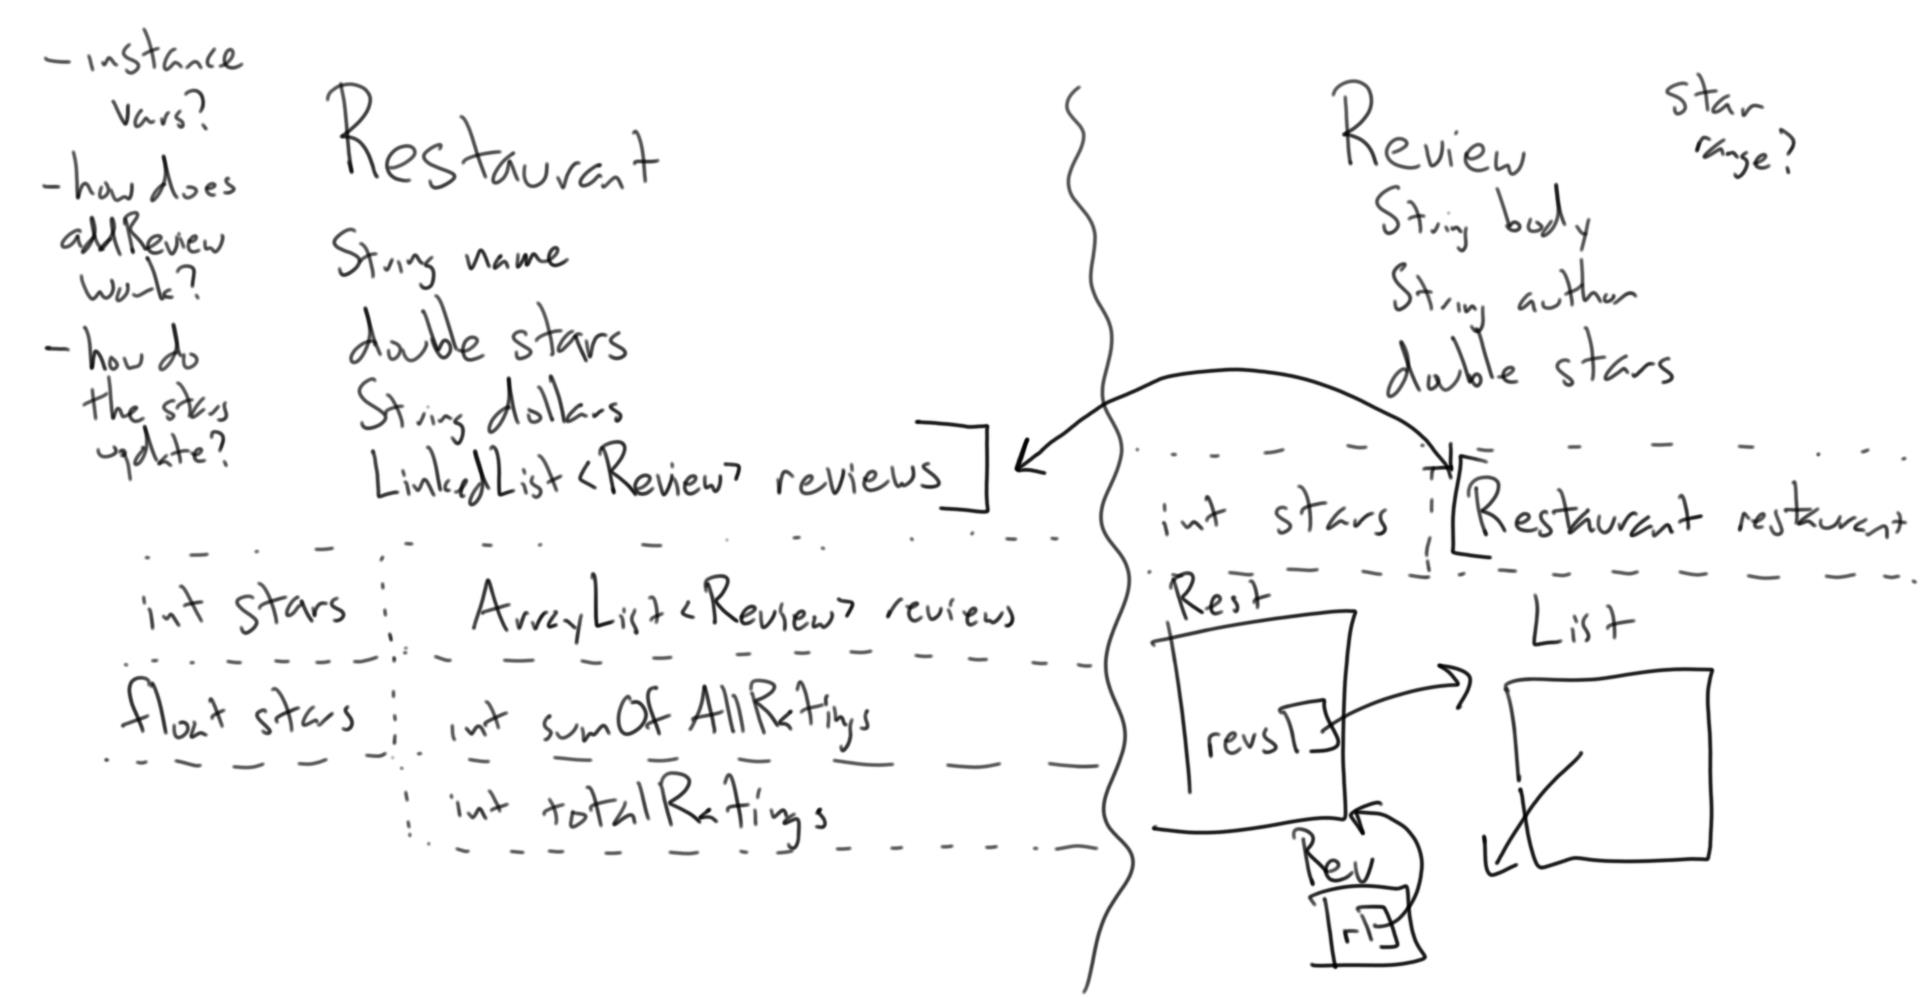 - instance
vars?
- how does
addReview
work?
- how do
the stars
update?
Restaurant
String name
double stars
String dollars
LinkedList <Review> reviews
int stars
ArrayList <Review> reviews
float stars
int sumOfAllRatings
int totalRatings
Review
star
range?
String body
String author
double stars
int stars
Restaurant restaurant
Rest
List
revs
Rev
r